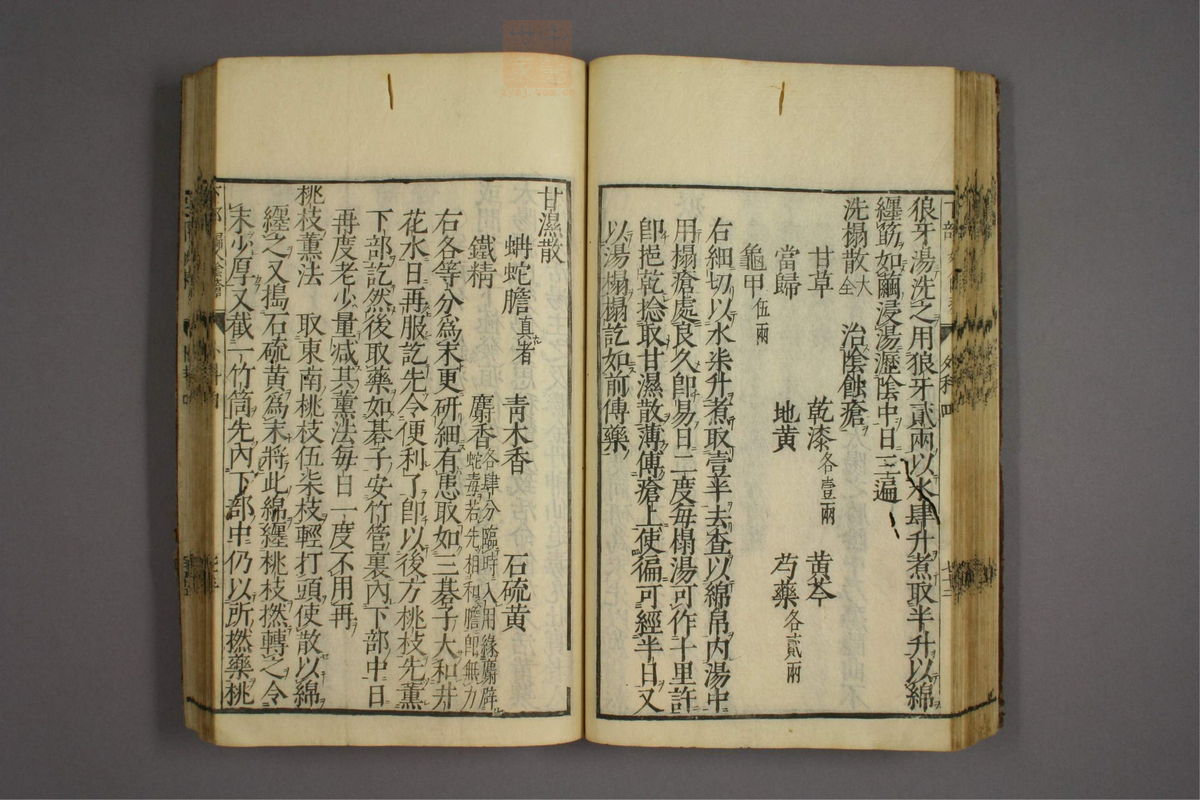 狼牙湯洗之用狼牙貳兩以水肆升煮取半升以綿
纏筯如繭浸湯瀝陰中日三遍
洗搨散 大全 治陰蝕瘡
甘草 乾漆各壹兩 黃芩
當歸 地黃 芍藥各貳兩
龜甲伍兩
右細切以水柒升煮取壹半去查以綿帛內湯中
用搨瘡處良久卽易日二度每榻湯可作十里許
卽挹乾捻取甘濕散薄傅瘡上使徧可經半日又
以湯搨搨訖如前傅藥
甘濕散
蚺蛇膽真者 青木香 石硫黃
鐵精 麝香各肆分臨時入用緣麝辟蛇毒若先相和膽卽無力
右各等分為末更研細有患取如三棊子大和井
花水日再服訖先令便利了卽以後方桃枝先薰
下部訖然後取藥如棊子安竹管裏內下部中日
再度老少量減其薰法每日一度不用再
桃枝薰法 取東南桃枝伍柒枝輕打頭使散以綿
纏之又搗石硫黃為末將此綿纏桃枝撚轉之令
末少厚又截一竹筒先內下部中仍以所撚藥桃